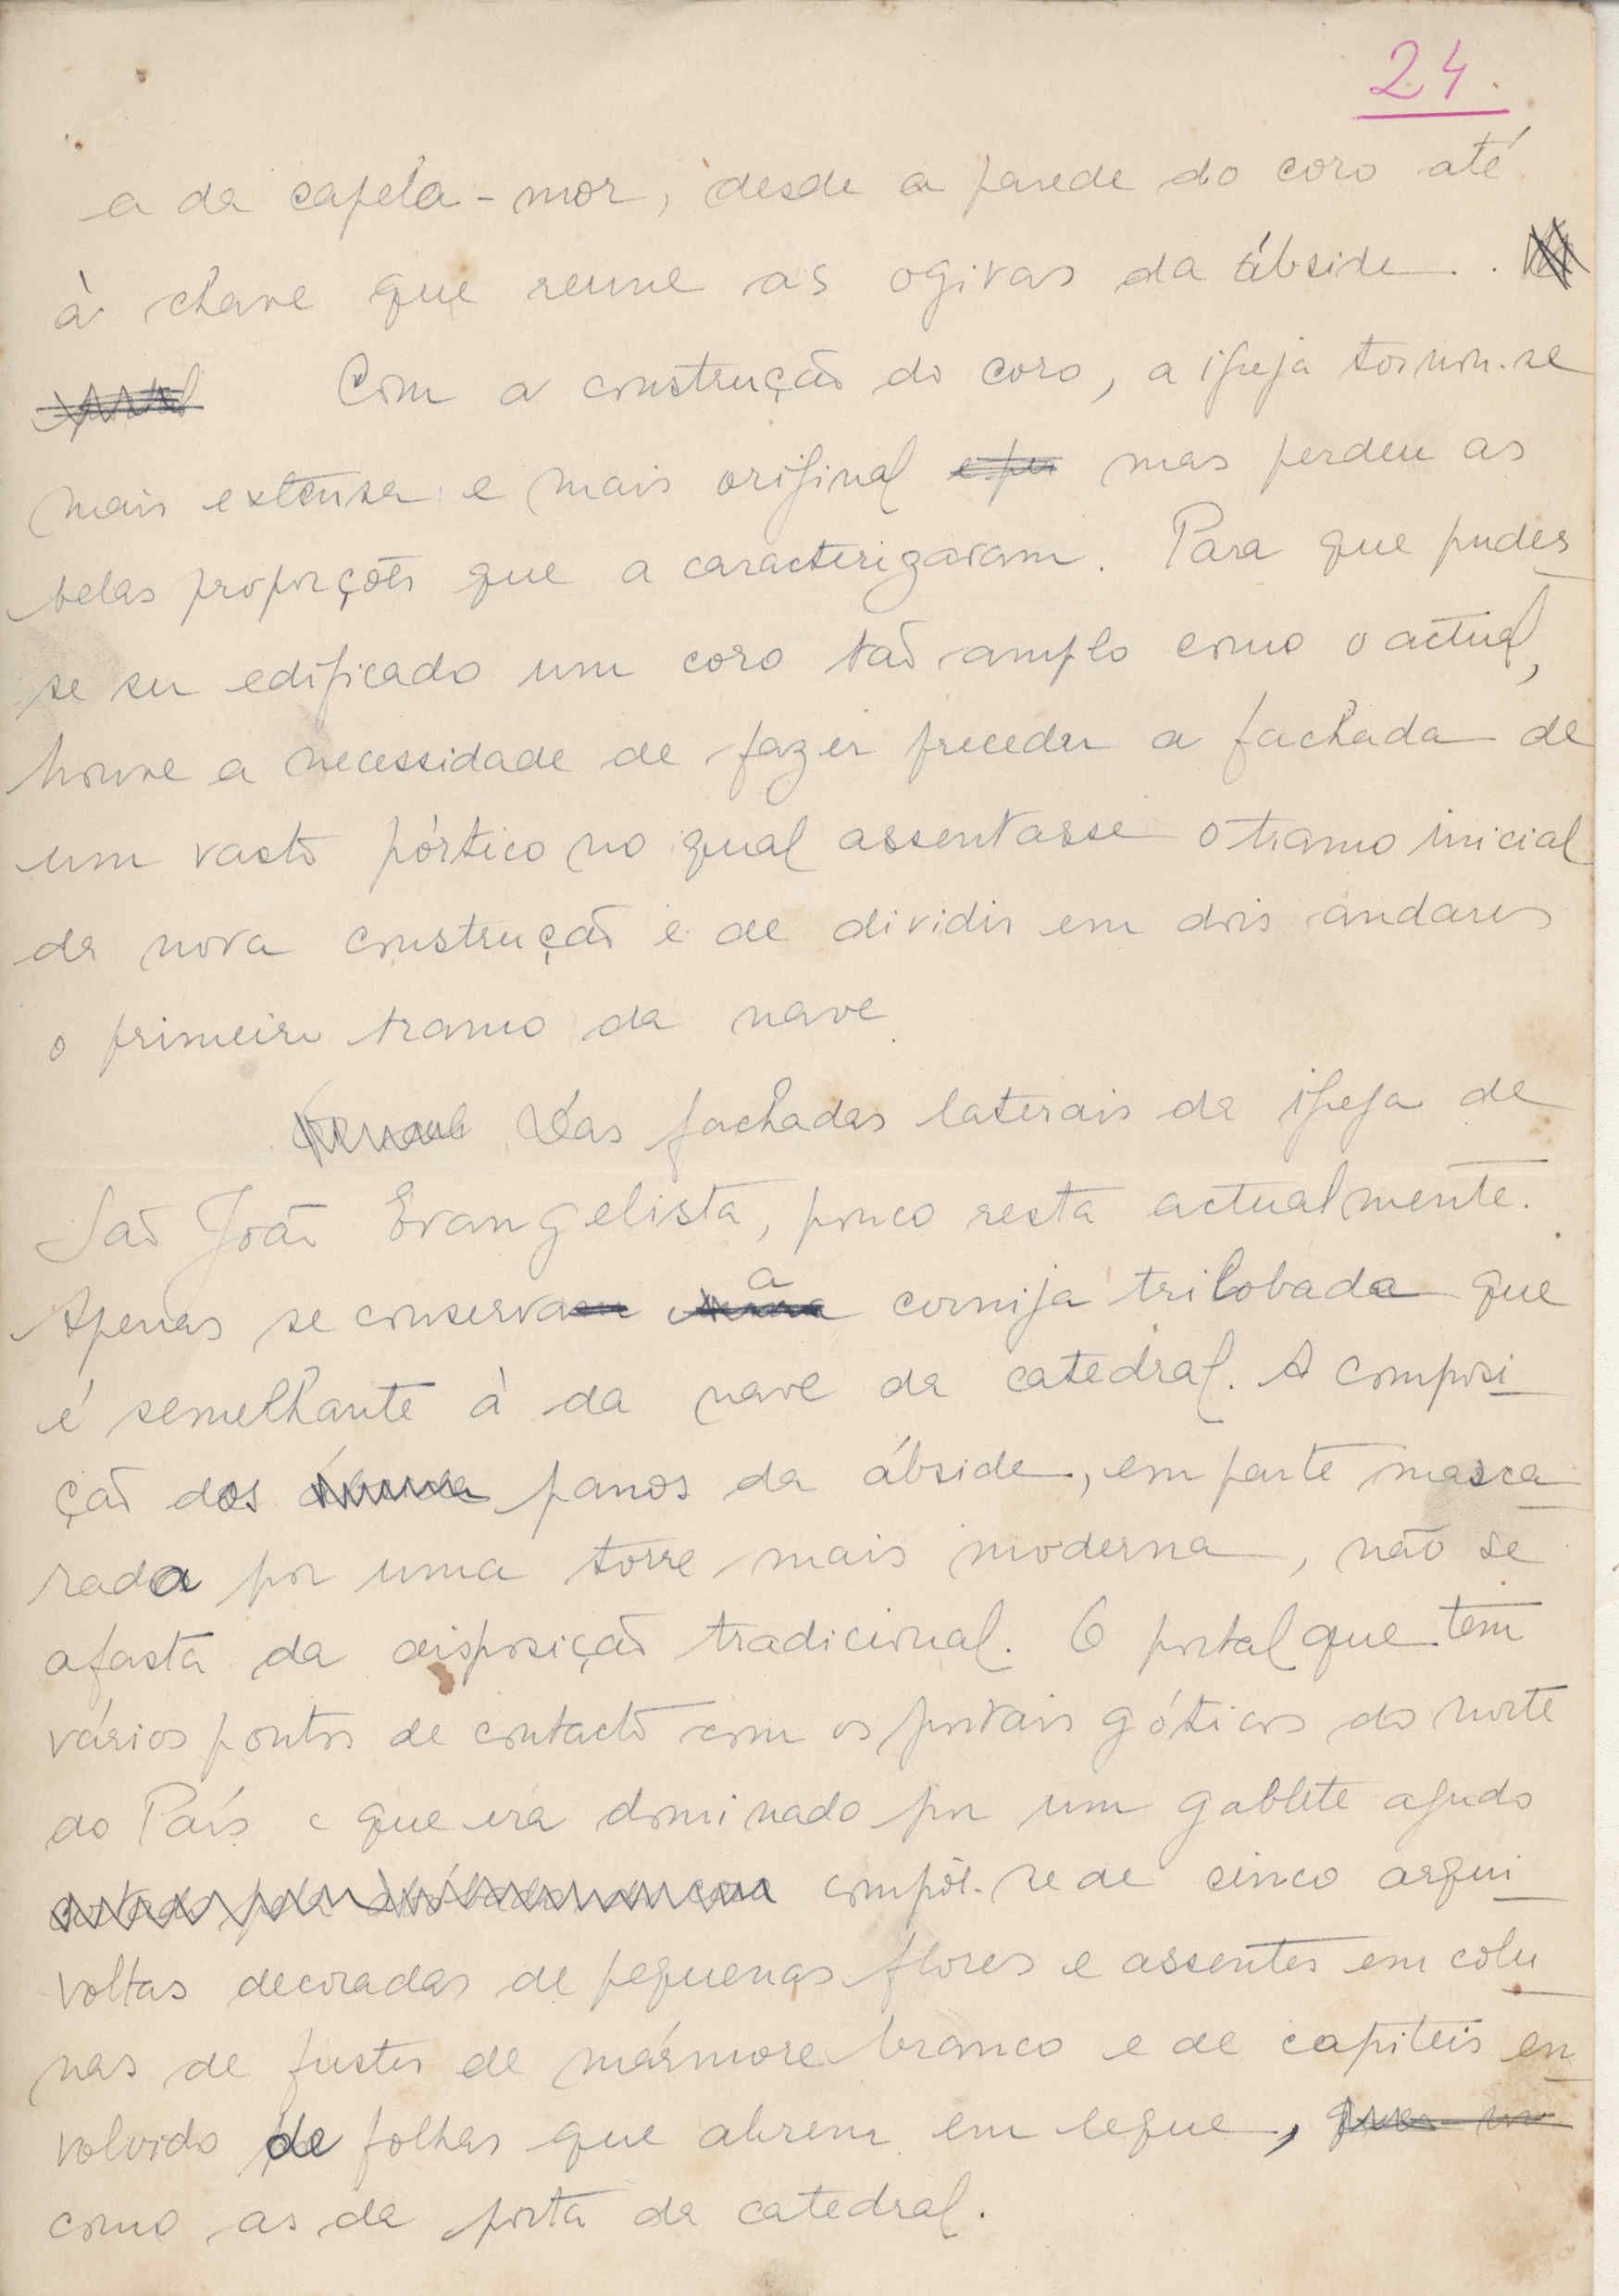 24.
a da capela-mor, desde a parede do coro até
à chave que reune as ogivas da ábside.
Com a construção do coro, a igreja tornou-se
mais extensa e mais original mas perdeu as
belas proporções que a caracterizavam. Para que pudes
se ser edificado um coro tão amplo como o actual,
houve a necessidade de fazer preceder a fachada de
um vasto pórtico no qual assentasse o tramo inicial
da nova construção e de dividir em dois andares
o primeiro tramo da nave
Das fachadas laterais da igreja de
São João Evangelista, pouco resta actualmente.
Apenas se conserva a cornija trilobada que
é semelhante à da nave da catedral. A composi
ção dos panos da ábside, em parte masca
rada por uma torre mais moderna, não se
afasta da disposição tradicional. O portal que tem
vários pontos de contacto com os portais góticos do norte
do País e que era dominado por um gablete agudo
compõe-se de cinco arqui
voltas decoradas de pequenas flores e assentes em colu
nas de fustes de mármore branco e de capiteis en
volvido de folhas que abrem em leque,
como as da porta da catedral.